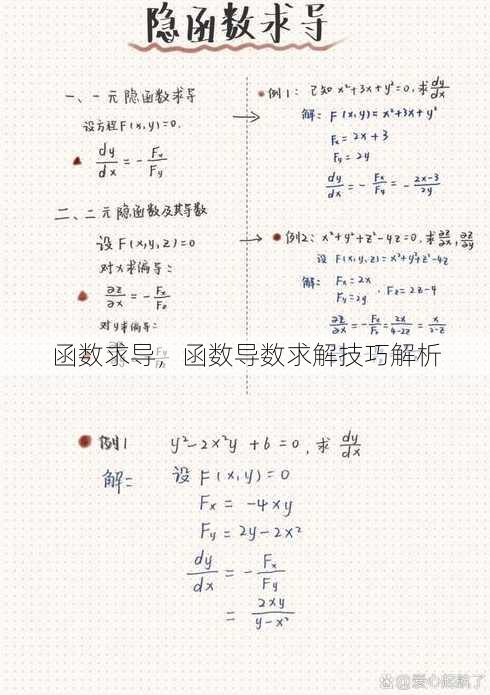 隐函数求导
一、一元隐函数求导
设方程F(x,y)=0.
dy/dx = - Fx/Fy
二、二元隐函数及其导数
设 F(x,y,z)=0
对x求偏导:
∂z/∂x = - Fx/Fz
对y求偏导:
例1: 已知 x²+3x+y²=0, 求 dy/dx
解: F(x,y)=x²+3x+y²
Fx = 2x+3
Fy = 2y
dy/dx = - Fx/Fy = - 2x-3/2y
例2: x²+y²+z²-4z=0, 求 ∂z/∂x, ∂z/∂y
设 F(x,y,z)=x²+y²+z²-4z
解: Fx=2x
Fy=2y , Fz=2z-4
函数求导,函数导数求解技巧解析
例1 y²-2x²y+6=0, 求 dy/dx
解: 设 F(x,y)=0
Fx = -4xy
Fy = 2y-2x²
dy/dx = - Fx/Fy
= 2xy/y-x²
@爱心